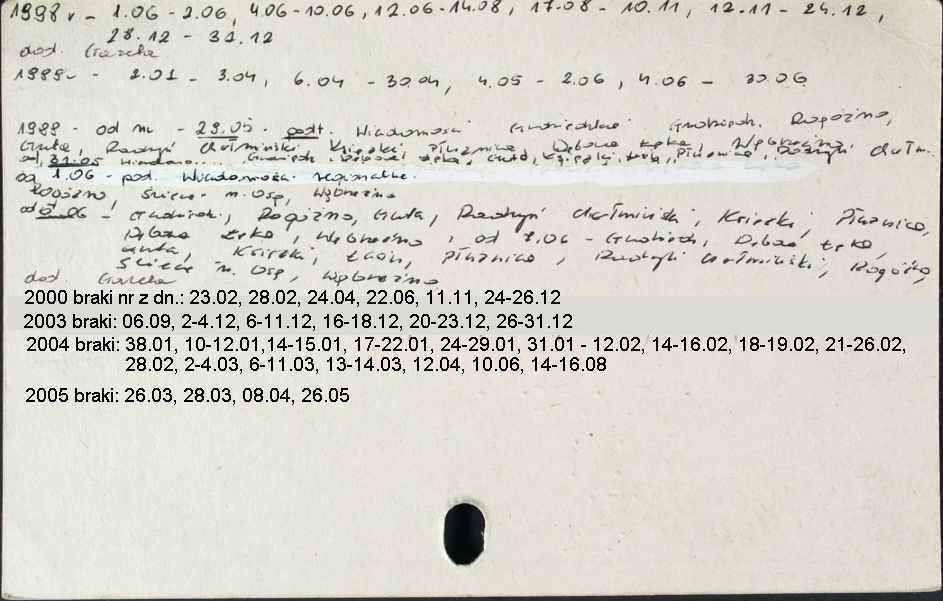 1998r - 1.06 - 2.06, 4.06 - 10.06, 12.06 - 14.08, 17.08 - 10.11, 12.11 - 24.12,
28.12 - 31.12
dod.
1999r - 2.01 - 3.04, 6.04 - 30.04, 4.05 - 2.06, 4.06 - 30.06
1999 - od nr - 29.05 - podt. Wiadomości Rogóźno,
Gruta, Radzyń Chełmiński, Książki, Płużnica, Dębowa Łąka, Wąbrzeźno
od 31.05
od 1.06 - pod. Wiadomości regionalne.
Rogóźno, Świecie n. Osą, Wąbrzeźno
Rogóźno, Gruta, Radzyń Chełmiński, Książki, Płużnica,
Dębowa Łąka, Wąbrzeźno, od 7.06 - Grudziądz, Dębowa Łąka,
Gruta, Książki, Łasin, Płużnica, Radzyń Chełmiński, Rogóźno,
Świecie n. Osą, Wąbrzeźno
dod.
2000 braki nr z dn.: 23.02, 28.02, 24.04, 22.06, 11.11, 24-26.12
2003 braki: 06.09, 2-4.12, 6-11.12, 16-18.12, 20-23.12, 26-31.12
2004 braki: 38.01, 10-12.01,14-15.01, 17-22.01, 24-29.01, 31.01 - 12.02, 14-16.02, 18-19.02, 21-26.02,
28.02, 2-4.03, 6-11.03, 13-14.03, 12.04, 10.06, 14-16.08
2005 braki: 26.03, 28.03, 08.04, 26.05